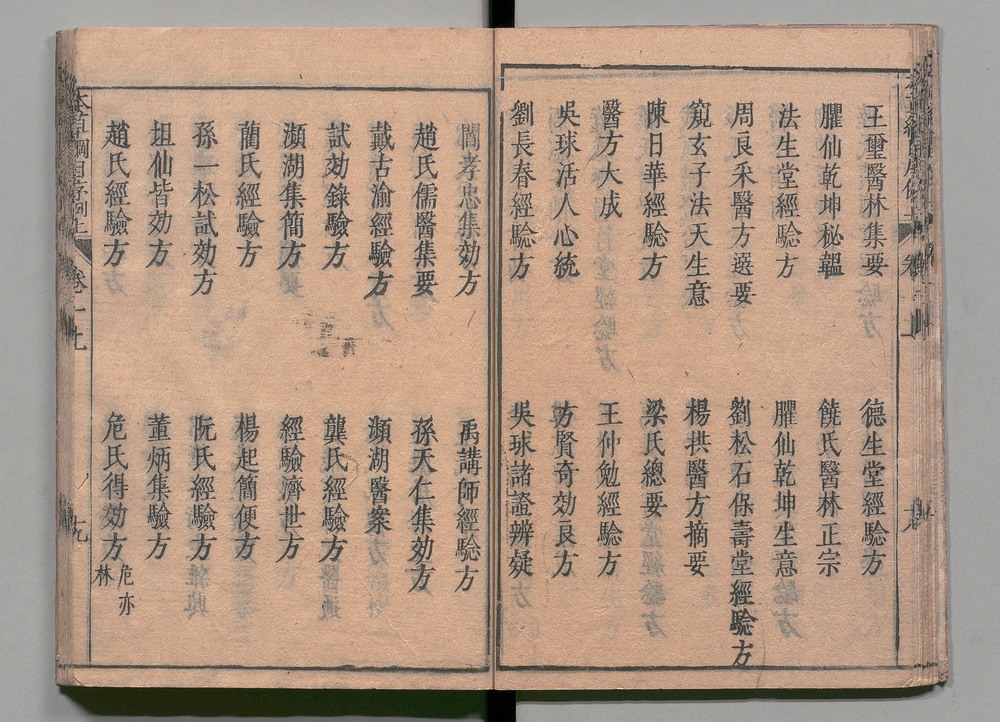 王璽醫林集要
德生堂經驗方
臞仙乾坤秘韞
饒氏醫林正宗
法生堂經驗方
臞仙乾坤生意
周良采醫方選要
劉松石保壽堂經驗方
窺玄子法天生意
楊拱醫方摘要
陳日華經驗方
梁氏總要
醫方大成
王仲勉經驗方
吳球活人心統
方賢奇効良方
劉長春經驗方
吳球諸證辨疑
閻孝忠集効方
禹講師經驗方
趙氏儒醫集要
孫天仁集効方
戴古渝經驗方
瀕湖醫案
試効錄驗方
龔氏經驗方
瀕湖集簡方
經驗濟世方
藺氏經驗方
楊起簡便方
孫一松試効方
阮氏經驗方
坦仙皆効方
董炳集驗方
趙氏經驗方
危氏得効方 危亦林
本草綱目序例上 卷一上 九